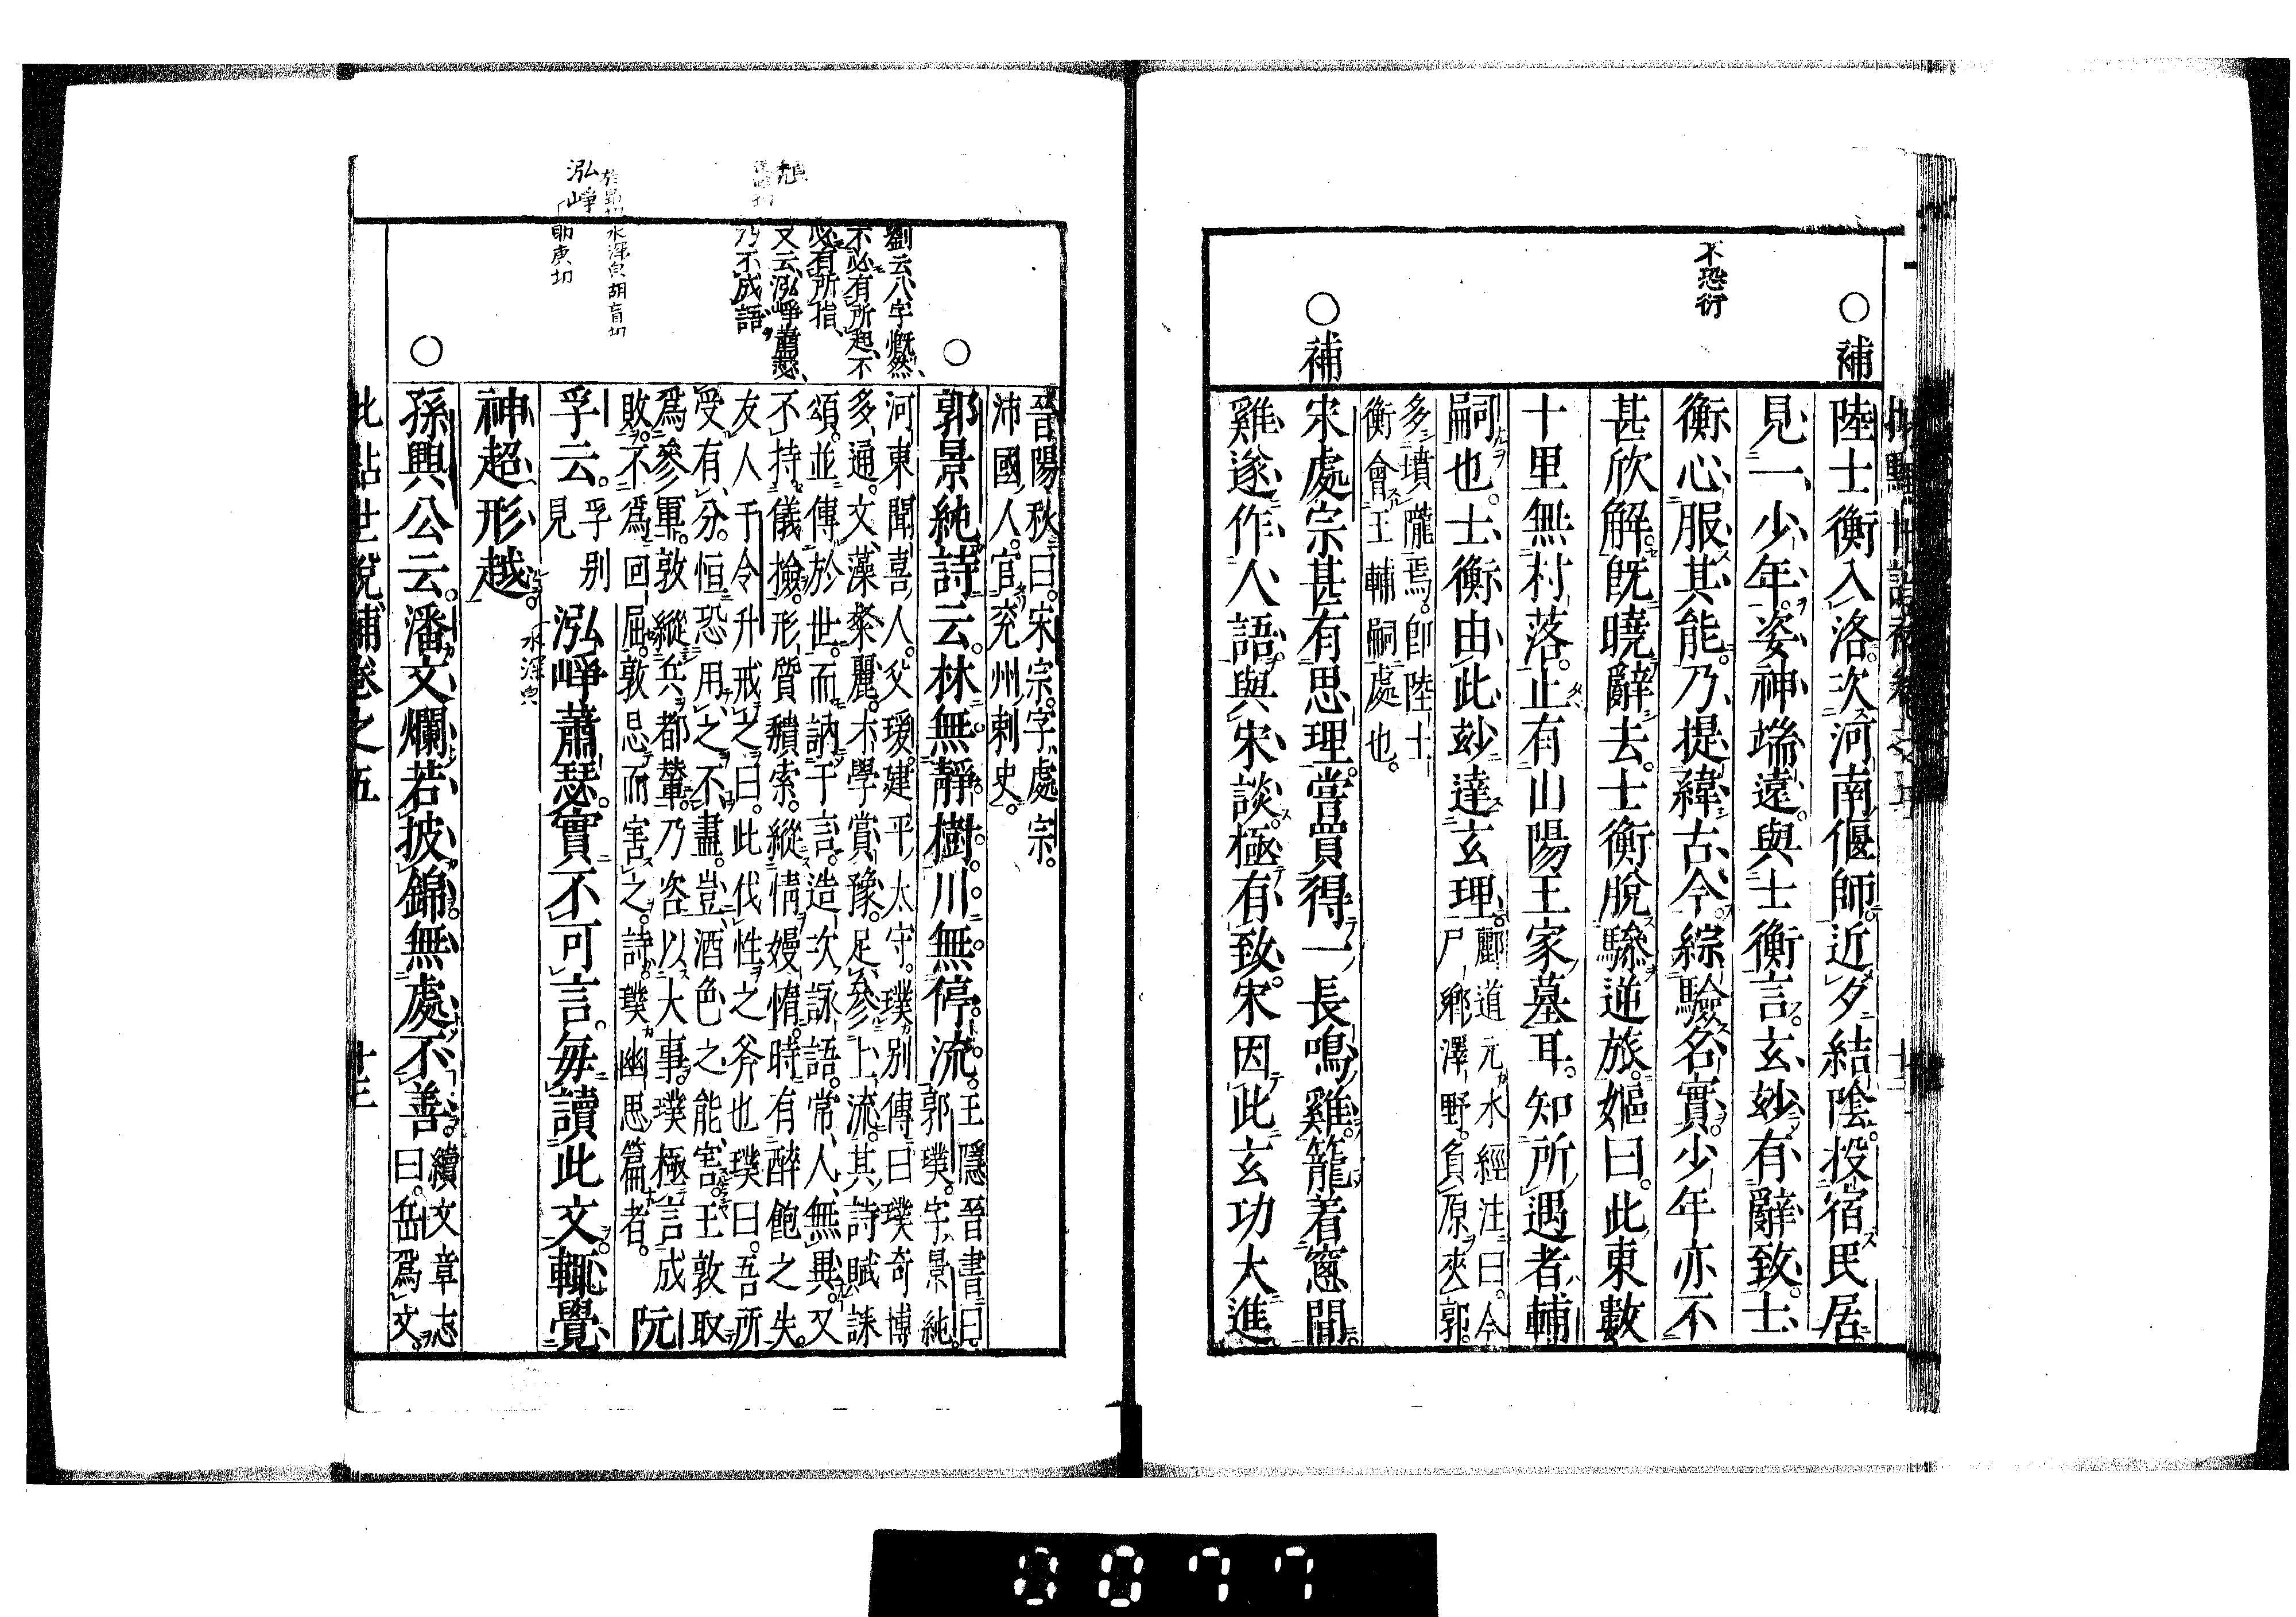 補
陸士衡入洛。次河南偃師。近夕結陰。投宿民居
見一少年。姿神端遠。與士衡言玄妙有辭致。士
不恐衍
衡心服其能。乃提緯古今。綜驗名實。少年亦不
甚欣解。既曉辭去。士衡脫驂逆旅。嫗曰。此東數
十里無村落。止有山陽王家墓耳。知所遇者輔
嗣也。士衡由此妙達玄理。
酈道元水經注曰。今
尸鄉澤野。負原夾郭。
多墳隴焉。即陸士
衡會王輔嗣處也。
補
宋處宗甚有思理。嘗買得一長鳴雞。籠着窓間。
雞遂作人語。與宋談極有致。宋因此玄功大進。
晉陽秋曰。宋宗。字處宗。
沛國人。官兗州刺史。
劉云八字慨然、
不必有所起、不
必有所指、
又云、泓崢蕭瑟、
乃不成語。
郭景純詩云。林無靜樹。川無停流。
王隱晉書曰
郭璞。字景純。
河東聞喜人。父瑗。建平太守。璞別傳曰璞奇博
多通。文藻粲麗。才學賞豫。足參上流。其詩賦誄
頌。並傳於世。而訥于言。造次詠語。常人無異。又
不持儀撿。形質穨索。縱情嫚惰。時有醉飽之失。
友人于令升戒之曰。此伐性之斧也璞曰。吾所
受有分。恒恐用之不盡。豈酒色之能害。王敦取
爲參軍。敦縱兵都輦。乃咨以大事。璞極言成
敗。不爲回屈。敦忌而害之。詩。璞幽思篇者。
阮
泓崢
助庚切
孚云。
孚別
見
泓崢蕭瑟。實不可言。每讀此文。輒覺
神超形越。
孫興公云。潘文爛若披錦。無處不善。
續文章志
曰。岳爲文。
世說補卷之五
十三
0077